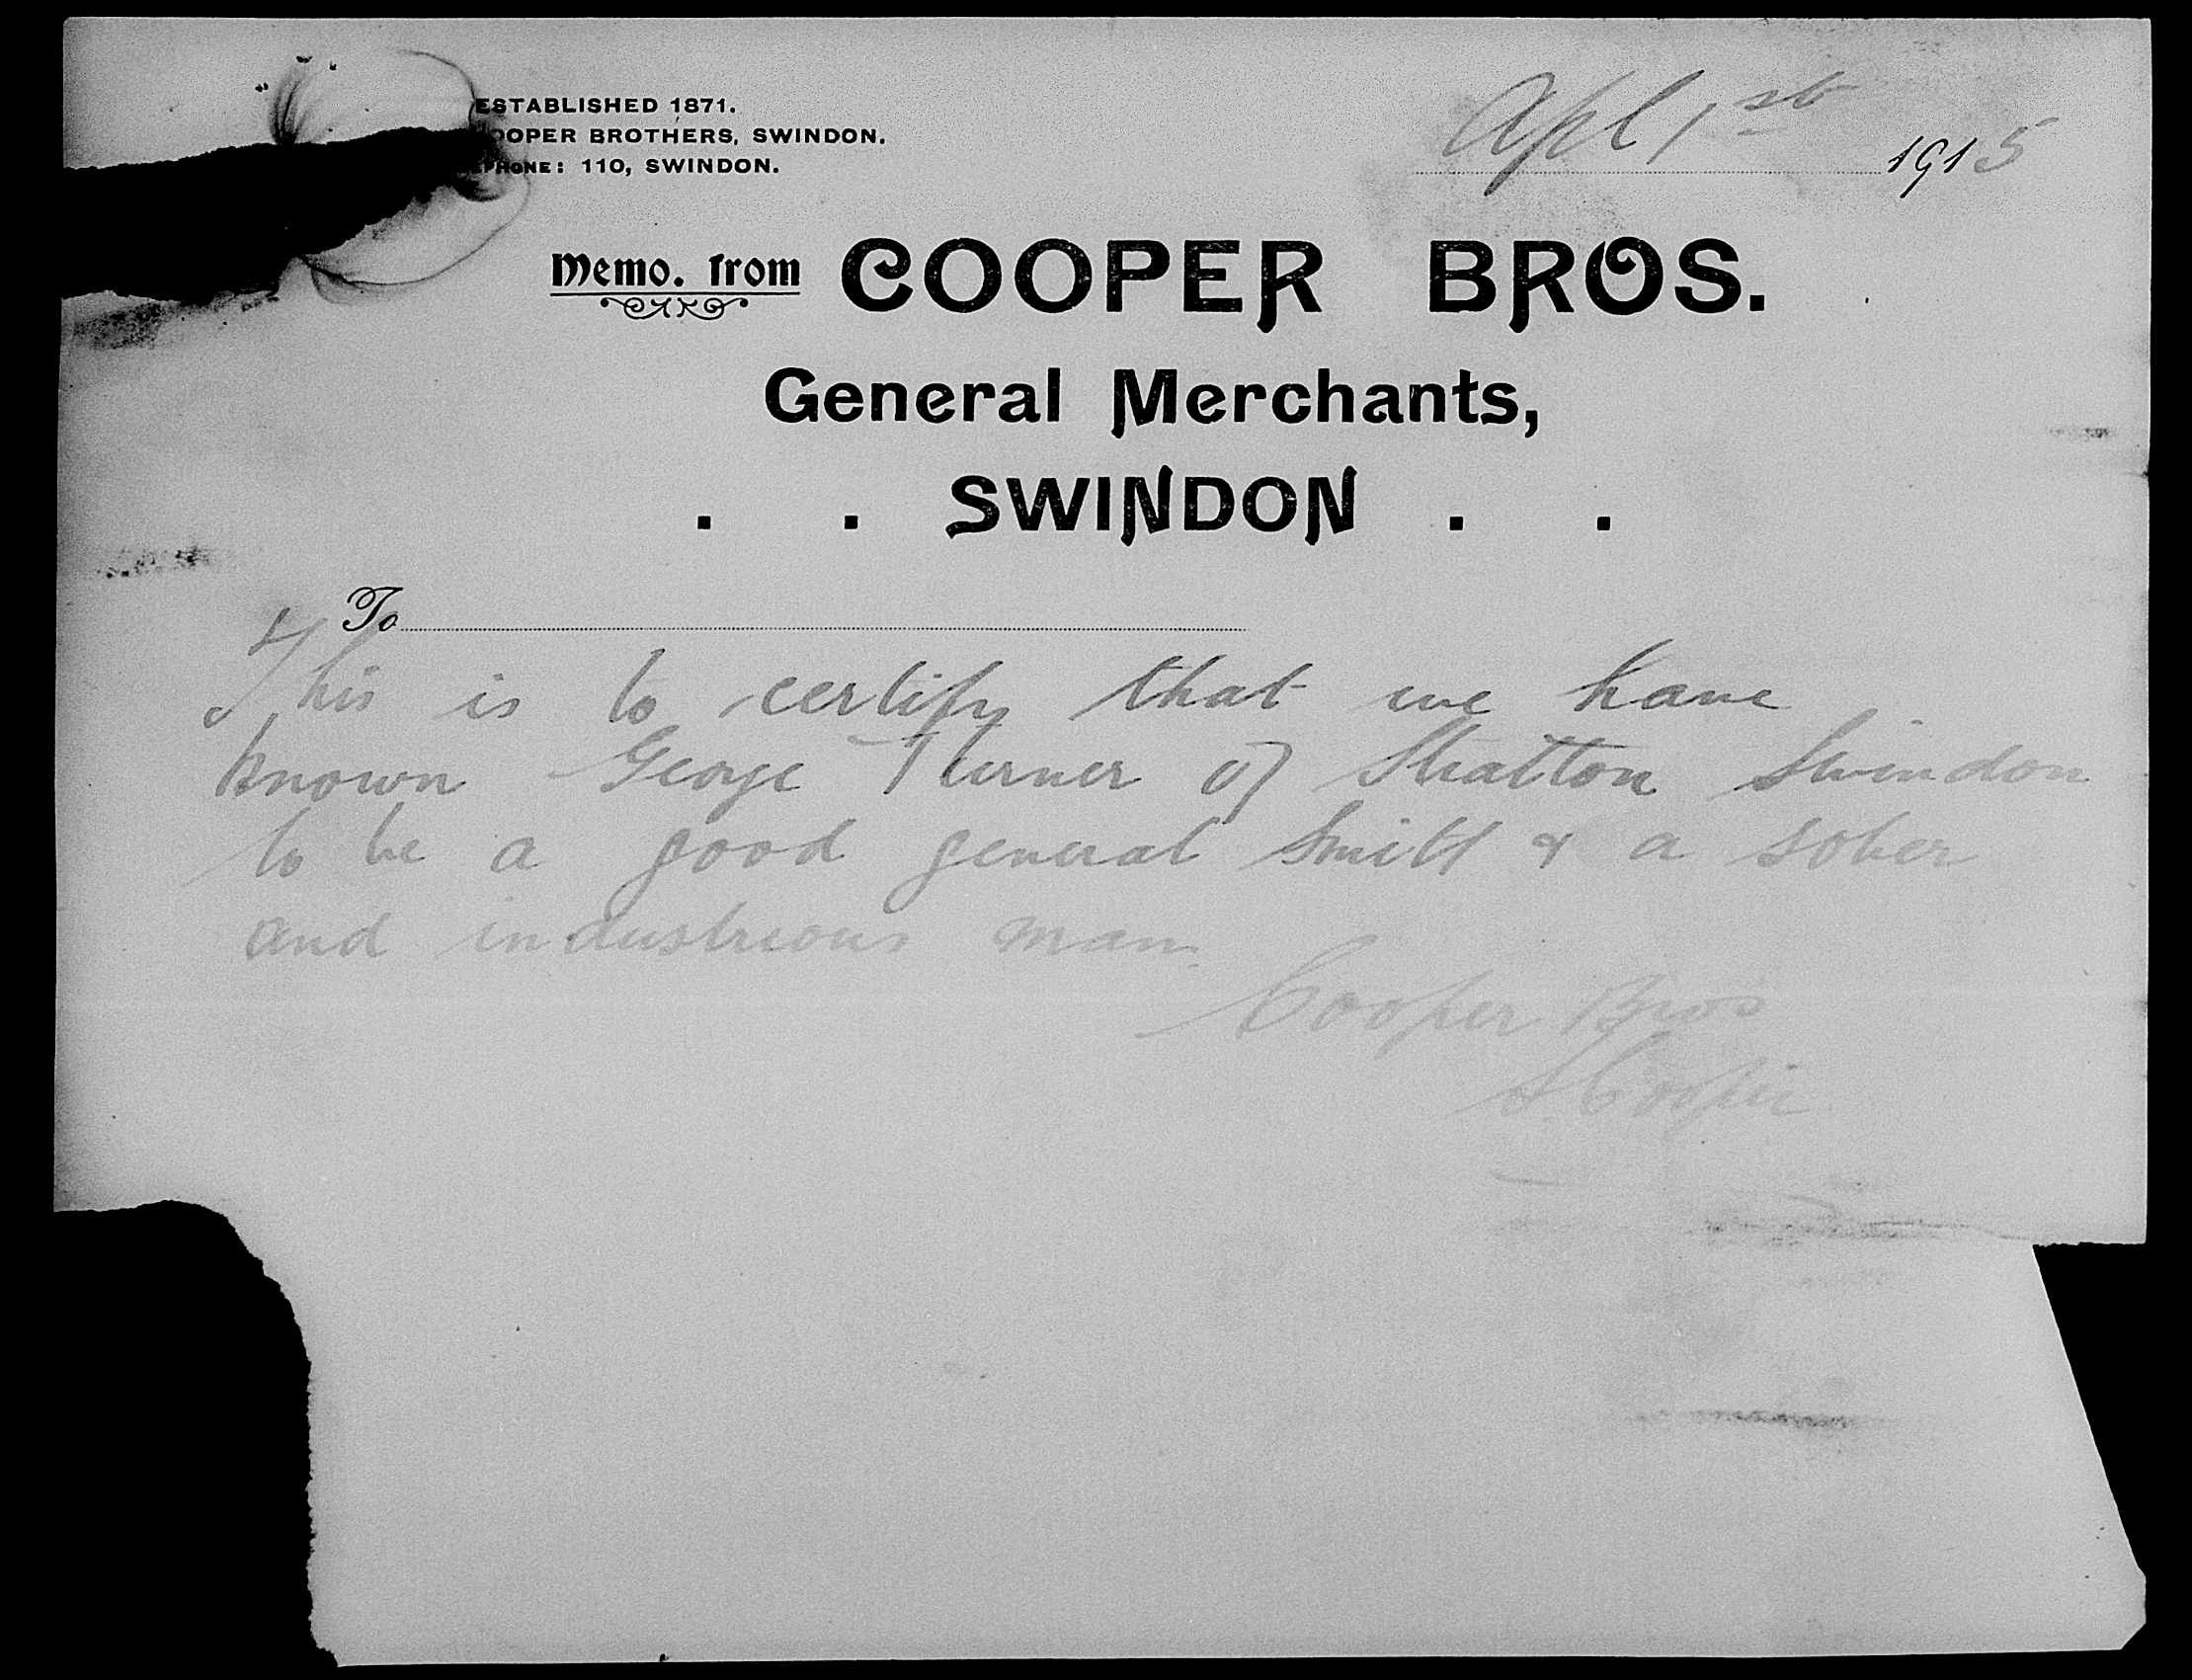 ESTABLISHED 1871.
OOPER BROTHERS, SWINDON.
PHONE: 110, SWINDON.
Apl 1st 1915
Memo. from COOPER BROS.
General Merchants,
. . SWINDON . .
To
This is to certify that we have
known George Turner of Stratton Swindon
to be a good general Smith & a sober
and industrious man.
Cooper Bros
Cooper